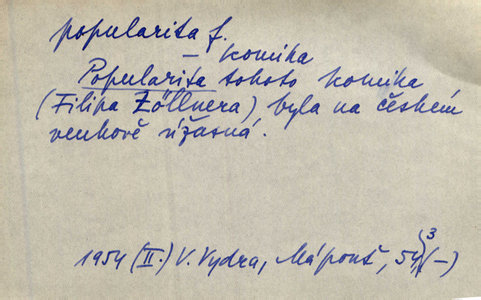 popularita f.
– komika
Popularita tohoto komika
(Filipa Zöllnera) byla na českém
venkově úžasná.
1954 (II.) V. Vydra, Má pouť, 54,
3
(–)